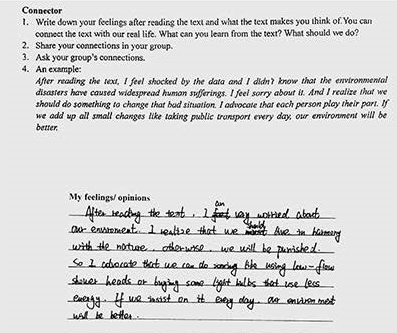 Connector
1. Write down your feelings after reading the text and what the text makes you think of. You can
connect the text with our real life. What can you learn from the text? What should we do?
2. Share your connections in your group.
3. Ask your group's connections.
4. An example:
After reading the text, I feel shocked by the data and I didn't know that the environmental
disasters have caused widespread human sufferings. I feel sorry about it. And I realize that we
should do something to change that bad situation. I advocate that each person play their part. If
we add up all small changes like taking public transport every day, our environment will be
better.
My feelings/ opinions
am
After reading the text, I feel very worried about
our enviroment. I realize that we should live in harmony
with the nature, otherwise, we will be punished.
So I advocate that we can do like using low-flow
shower heads or buying some light bulbs that use less
energy. If we insist on it every day, our environment
will be better.